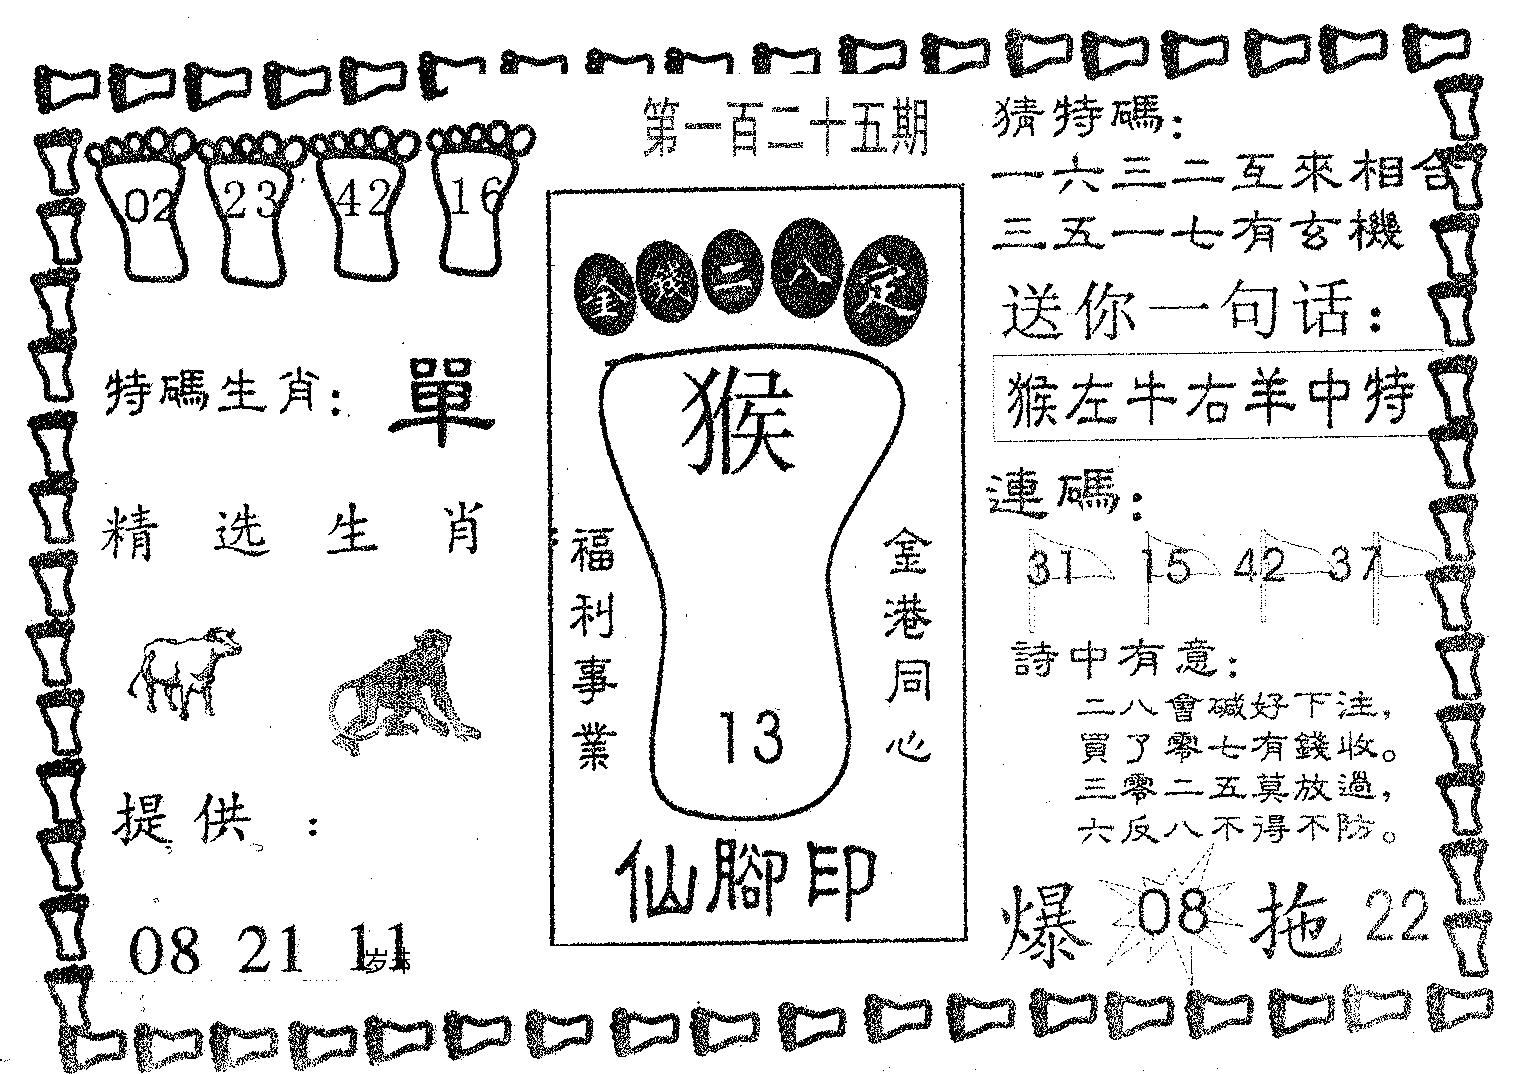 第一百二十五期
02 23 42 16
特碼生肖: 單
精选生肖:
提供:
08 21 11
金發二八定
猴
福利事業
金港同心
13
仙腳印
猜特碼:
一六三二互來相合
三五一七有玄機
送你一句话:
猴左牛右羊中特
連碼:
31 15 42 37
詩中有意:
二八會碱好下注,
買了零七有錢收。
三零二五莫放過,
六反八不得不防。
爆 08 拖 22